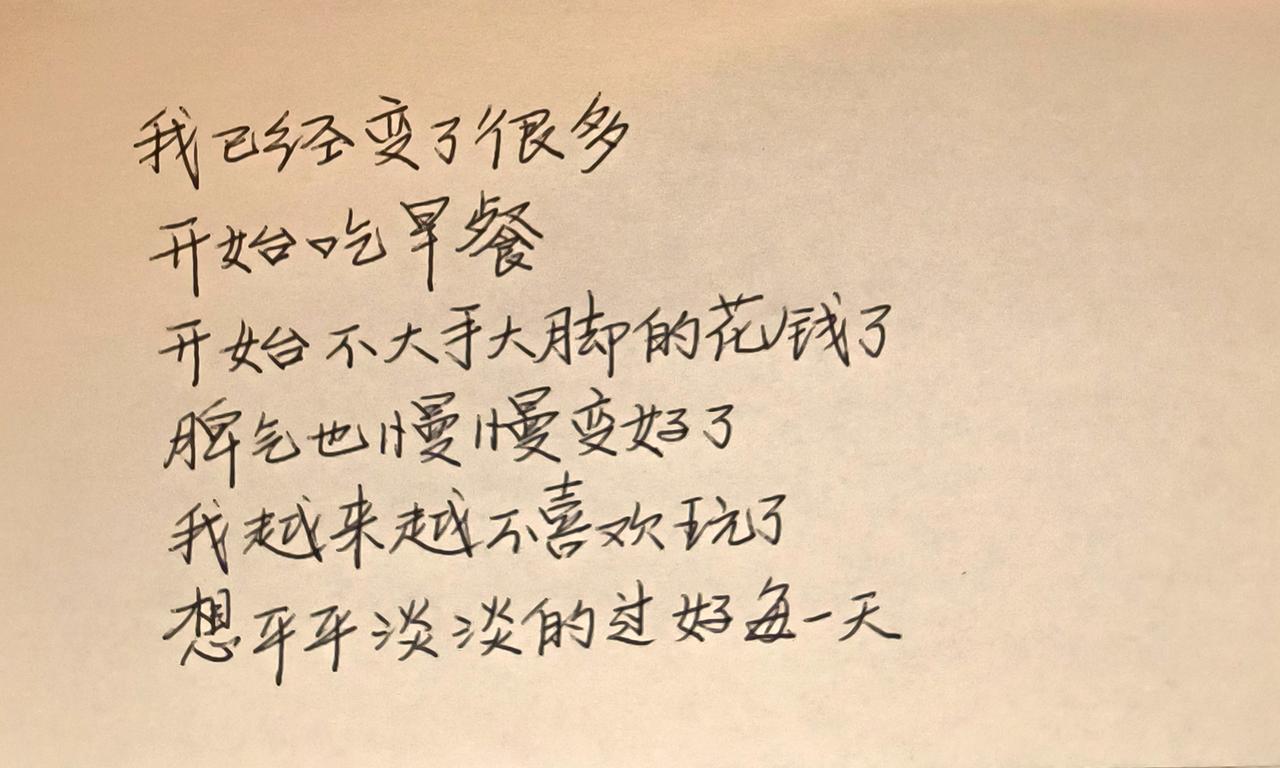 我已经变了很多
开始吃早餐
开始不大手大脚的花钱了
脾气也慢慢变好了
我越来越不喜欢玩了
想平平淡淡的过好每一天